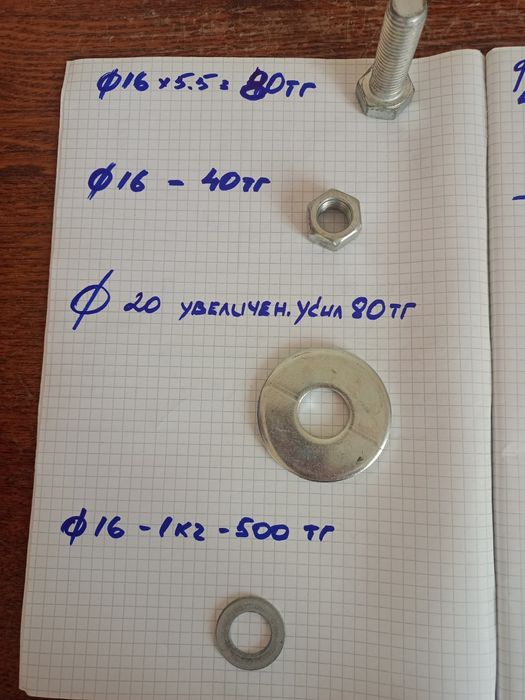 ф16 х 5.5 = 80тг
ф16 - 40тг
ф 20 увеличен. усил 80тг
ф16 - 1кг - 500 тг